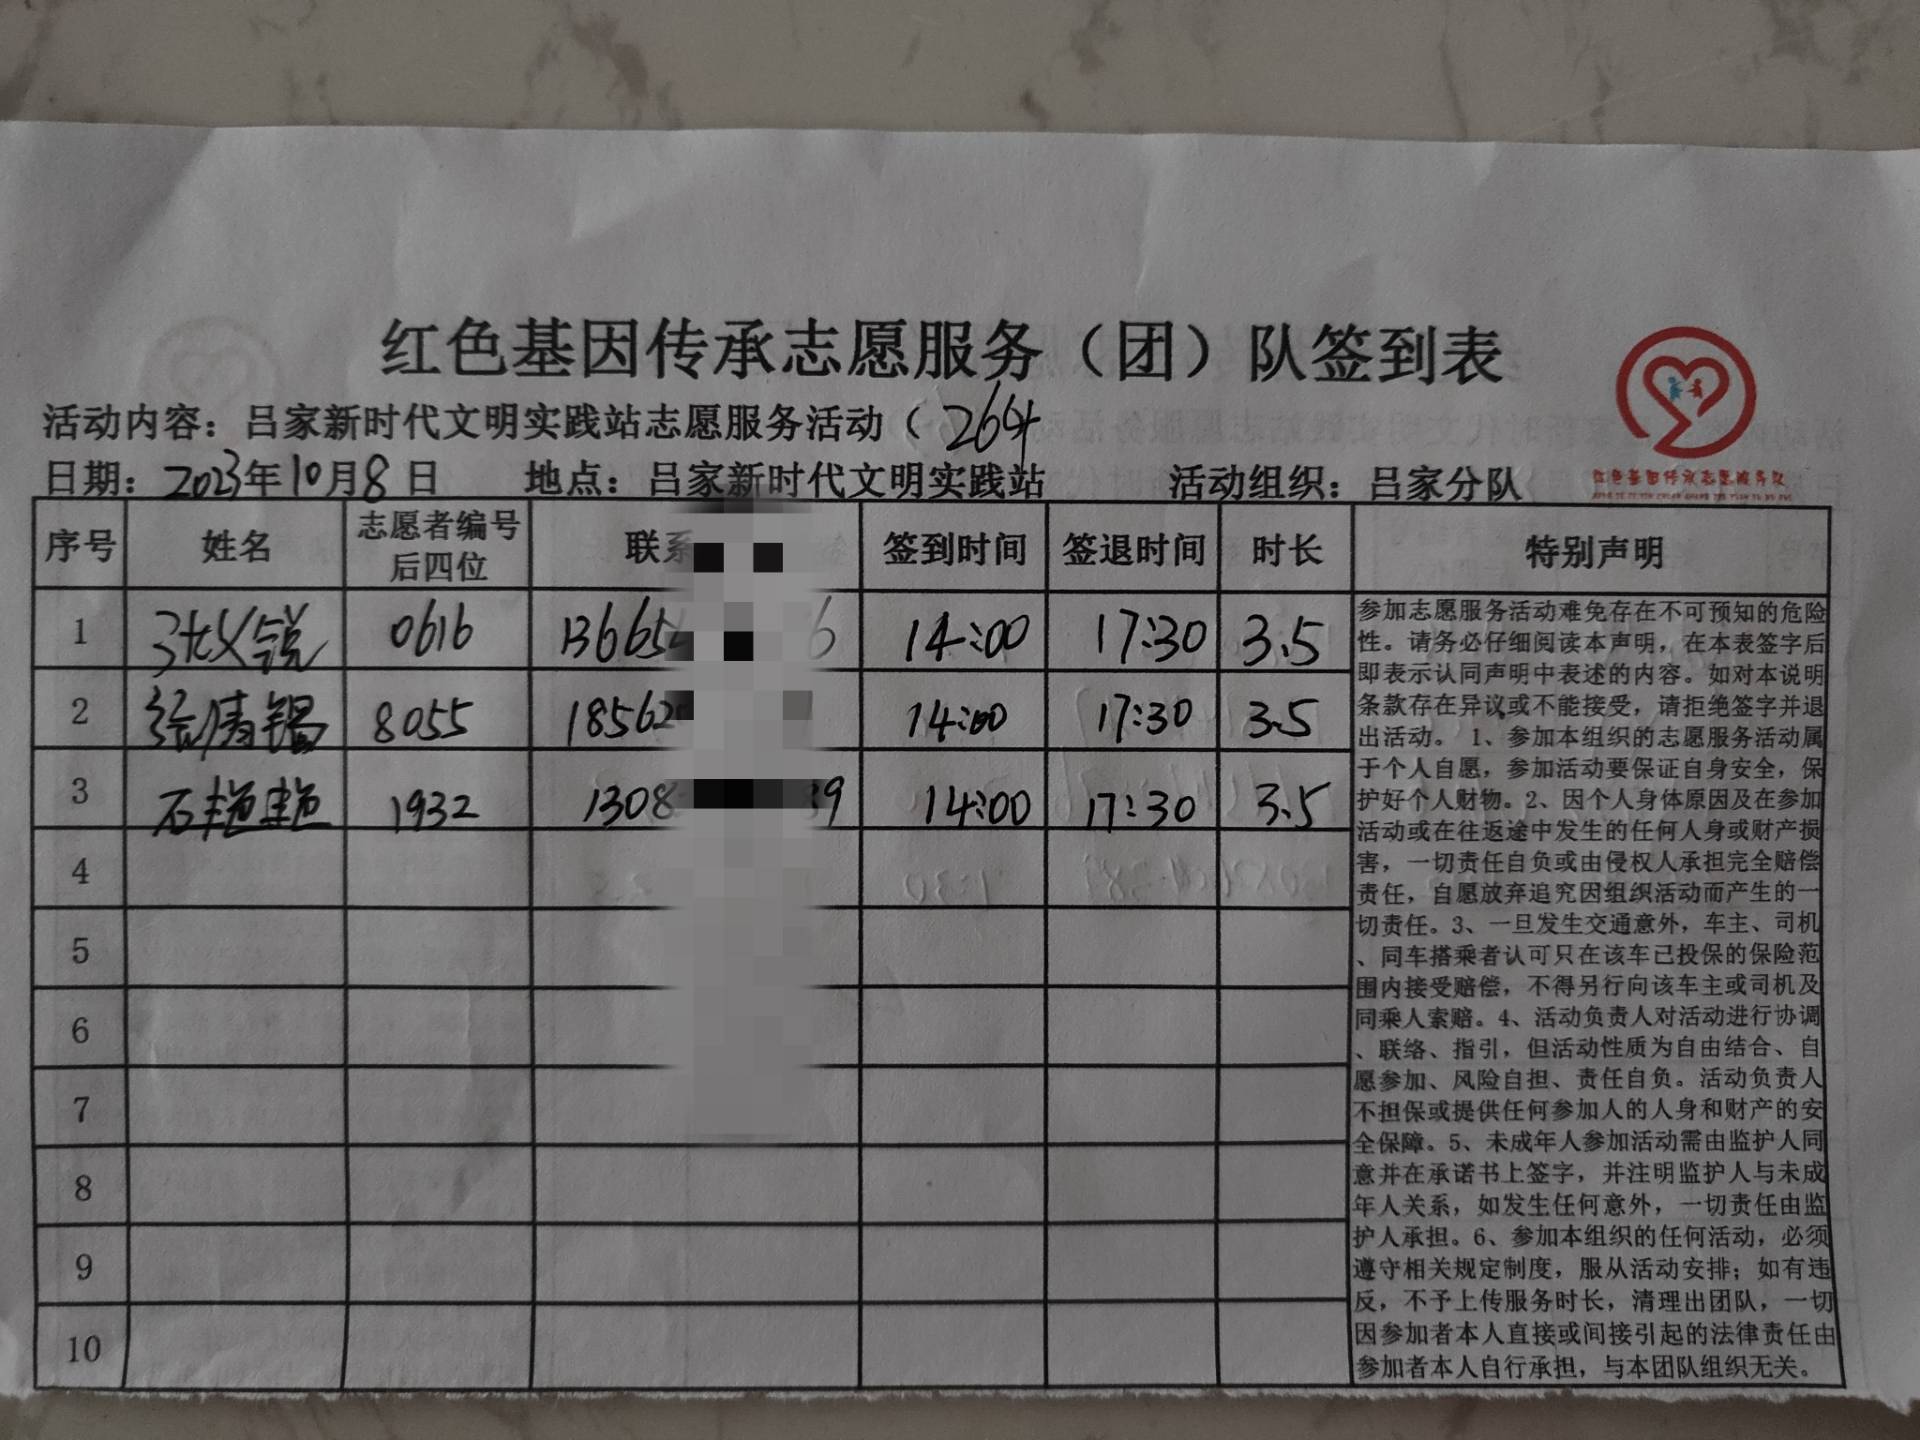 红色基因传承志愿服务（团）队签到表
活动内容：吕家新时代文明实践站志愿服务活动（264
日期：2023年10月8日 地点：吕家新时代文明实践站 活动组织：吕家分队
红色基因传承志愿服务队
序号 姓名 志愿者编号后四位 联系 签到时间 签退时间 时长 特别声明
1 0616 13665 6 14:00 17:30 3.5
2 8055 18562 14:00 17:30 3.5
3 石艳艳 1932 1308 39 14:00 17:30 3.5
4
5
6
7
8
9
10
参加志愿服务活动难免存在不可预知的危险
性。请务必仔细阅读本声明，在本表签字后
即表示认同声明中表述的内容。如对本说明
条款存在异议或不能接受，请拒绝签字并退
出活动。 1、参加本组织的志愿服务活动属
于个人自愿，参加活动要保证自身安全，保
护好个人财物。2、因个人身体原因及在参加
活动或在往返途中发生的任何人身或财产损
害，一切责任自负或由侵权人承担完全赔偿
责任，自愿放弃追究因组织活动而产生的一
切责任。3、一旦发生交通意外，车主、司机
、同车搭乘者认可只在该车已投保的保险范
围内接受赔偿，不得另行向该车主或司机及
同乘人索赔。4、活动负责人对活动进行协调
、联络、指引，但活动性质为自由结合、自
愿参加、风险自担、责任自负。活动负责人
不担保或提供任何参加人的人身和财产的安
全保障。5、未成年人参加活动需由监护人同
意并在承诺书上签字，并注明监护人与未成
年人关系，如发生任何意外，一切责任由监
护人承担。6、参加本组织的任何活动，必须
遵守相关规定制度，服从活动安排；如有违
反，不予上传服务时长，清理出团队，一切
因参加者本人直接或间接引起的法律责任由
参加者本人自行承担，与本团队组织无关。